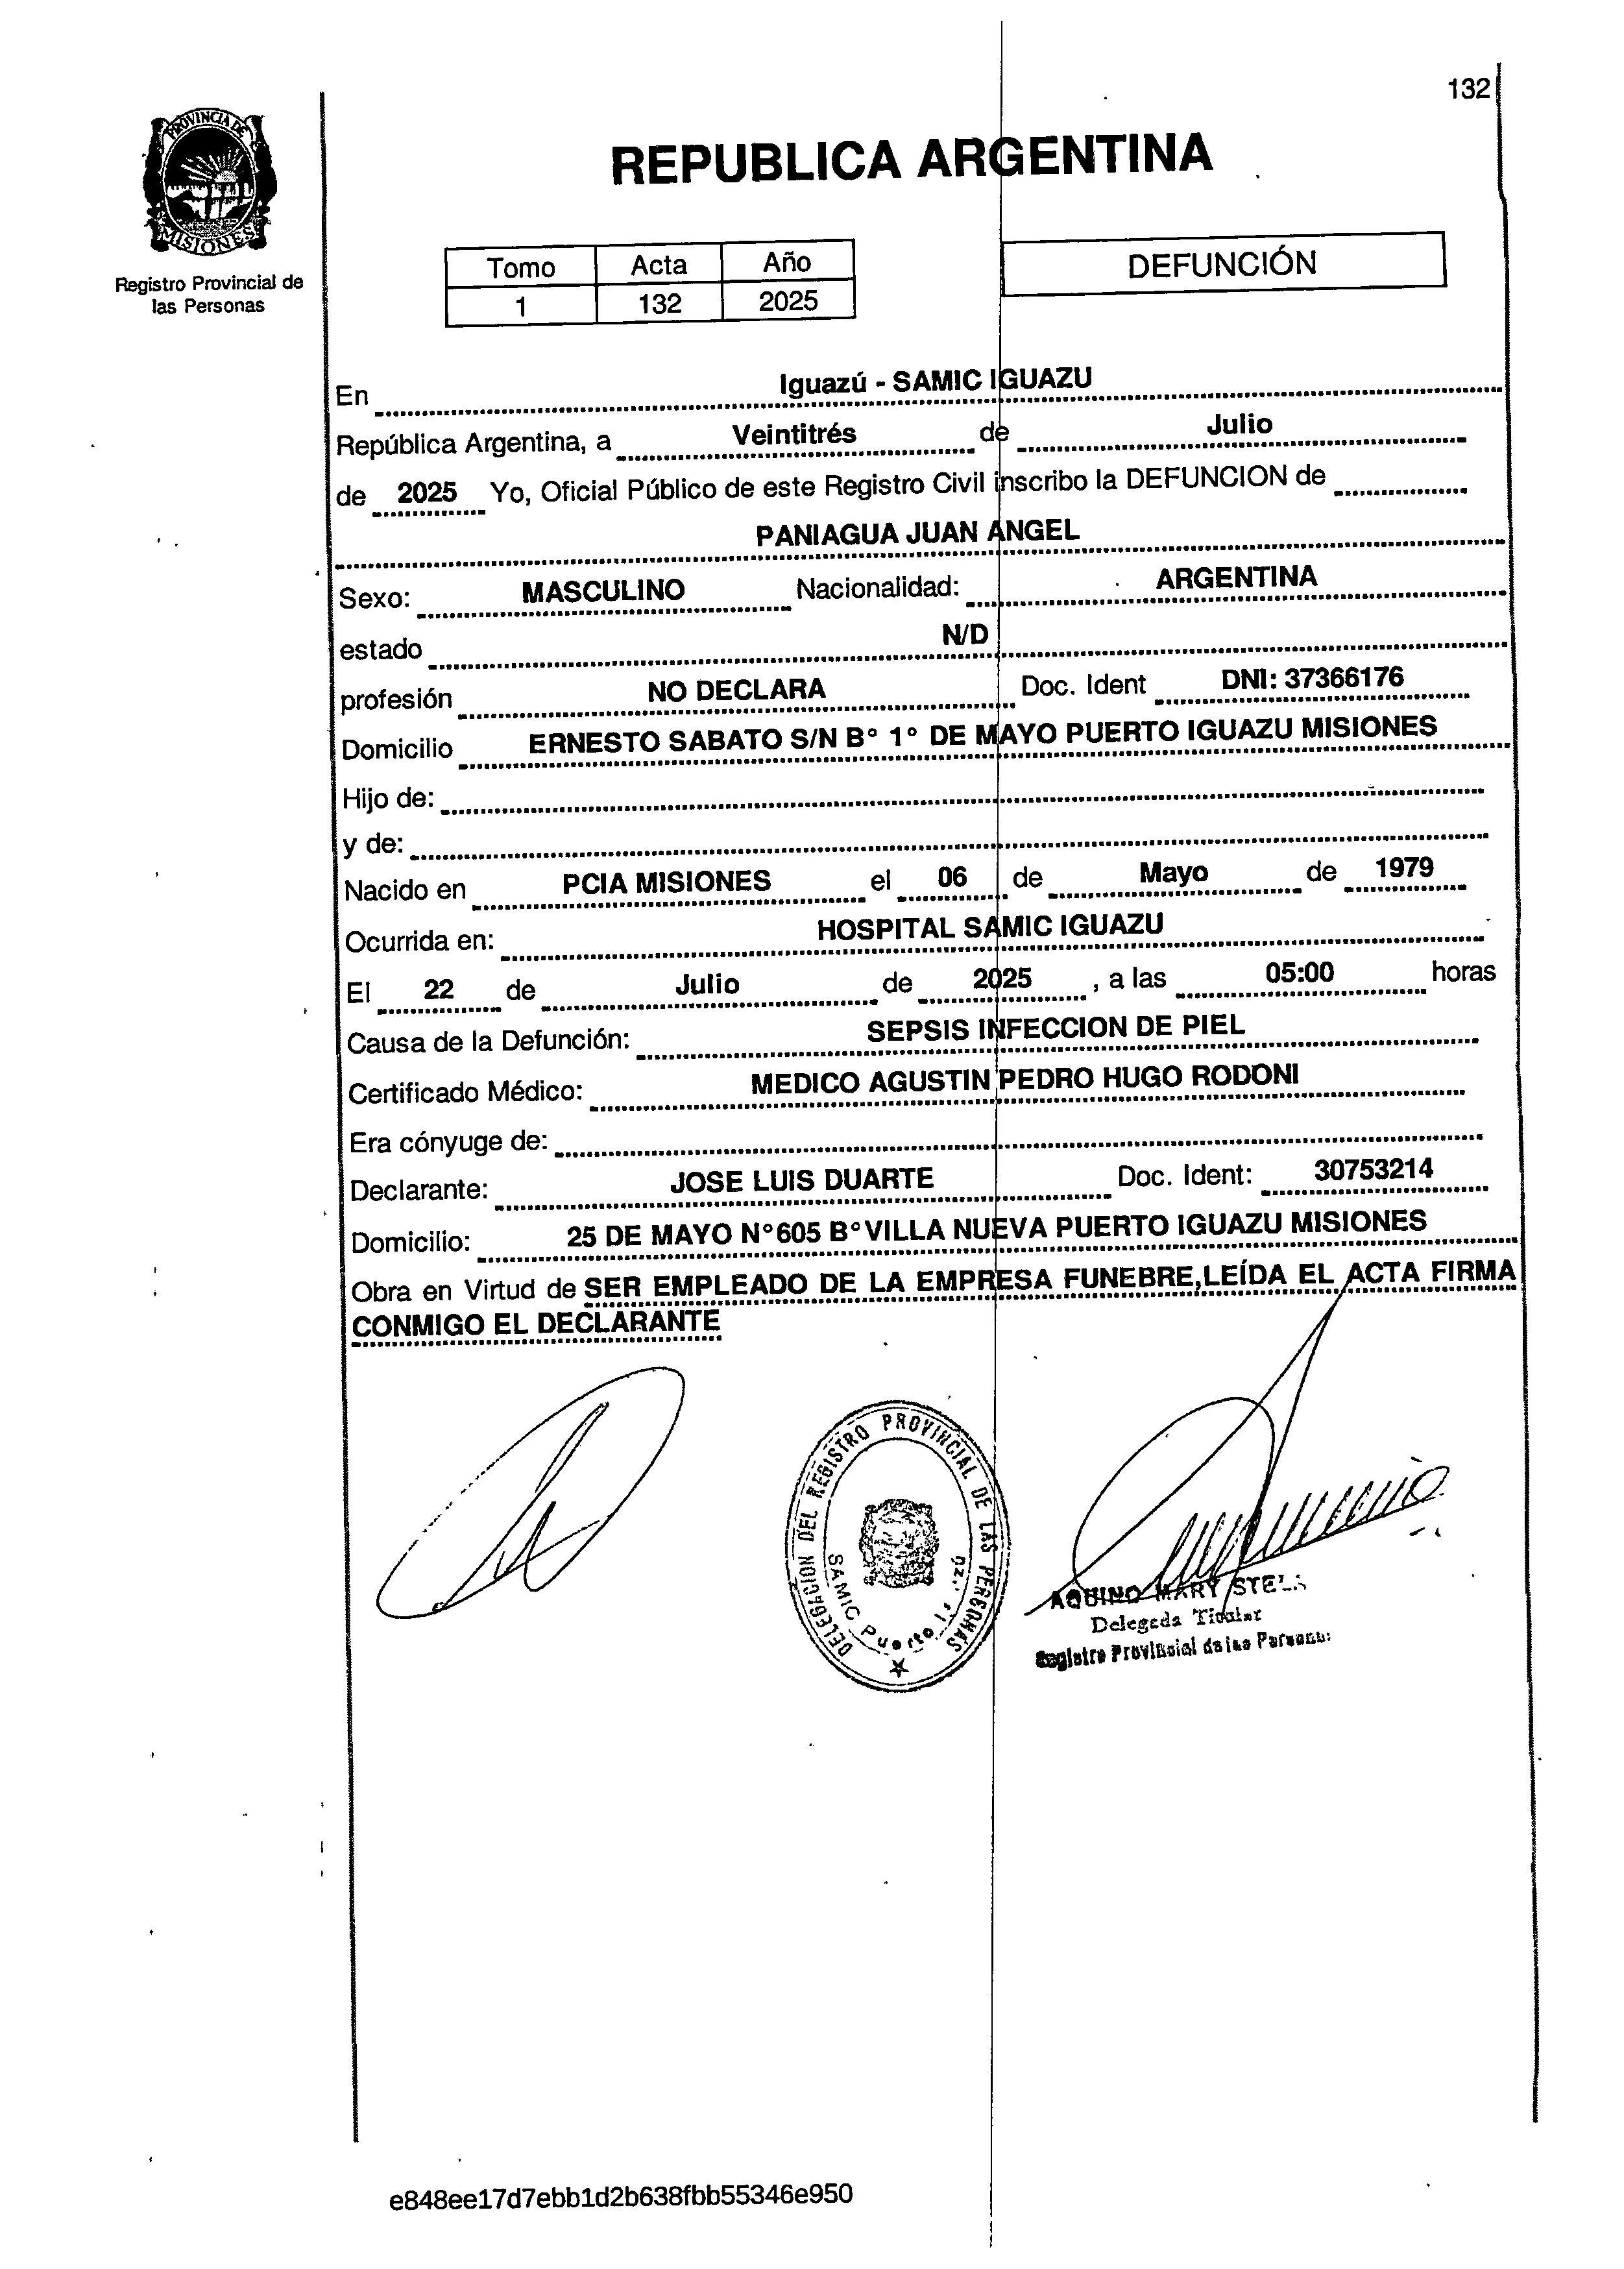 132
PROVINCIA DE
MISIONES
Registro Provincial de
las Personas
REPUBLICA ARGENTINA
Tomo Acta Año
1 132 2025
DEFUNCIÓN
En Iguazú - SAMIC IGUAZU
República Argentina, a Veintitrés de Julio
de 2025 Yo, Oficial Público de este Registro Civil inscribo la DEFUNCION de
PANIAGUA JUAN ANGEL
Sexo: MASCULINO Nacionalidad: ARGENTINA
estado N/D
profesión NO DECLARA Doc. Ident DNI: 37366176
Domicilio ERNESTO SABATO S/N B° 1° DE MAYO PUERTO IGUAZU MISIONES
Hijo de:
y de:
Nacido en PCIA MISIONES el 06 de Mayo de 1979
Ocurrida en: HOSPITAL SAMIC IGUAZU
El 22 de Julio de 2025 , a las 05:00 horas
Causa de la Defunción: SEPSIS INFECCION DE PIEL
Certificado Médico: MEDICO AGUSTIN PEDRO HUGO RODONI
Era cónyuge de:
Declarante: JOSE LUIS DUARTE Doc. Ident: 30753214
Domicilio: 25 DE MAYO N°605 B°VILLA NUEVA PUERTO IGUAZU MISIONES
Obra en Virtud de SER EMPLEADO DE LA EMPRESA FUNEBRE,LEÍDA EL ACTA FIRMA
CONMIGO EL DECLARANTE
DELEGACION DEL REGISTRO PROVINCIAL DE LAS PERSONAS
SAMIC Puerto
AQUINO MARY
Delegada Titular
Registro Provincial de las
e848ee17d7ebb1d2b638fbb55346e950